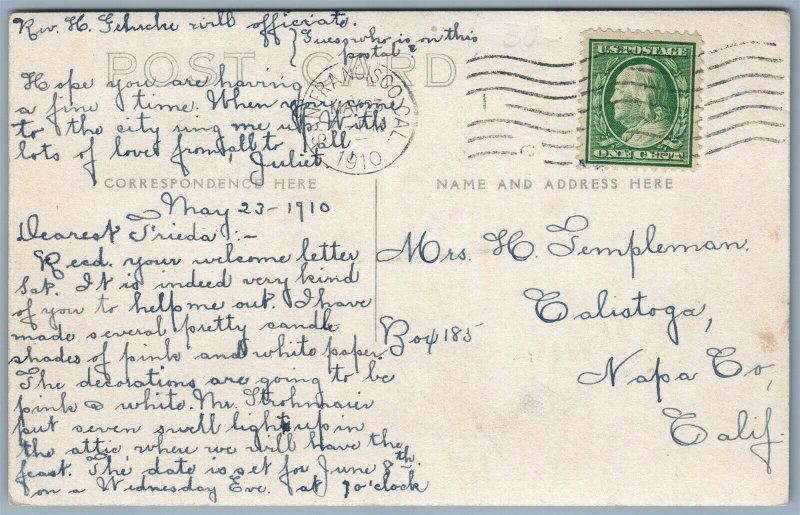 Rev. H. Gehrcke will officiate.
Guess who is on this
postal?
POST CARD
Hope you are having
a fine time. When you come
to the city ring me up. With
lots of love from all to all
Juliet.
SAN FRANCISCO, CAL.
MAY
1910
U.S. POSTAGE
ONE CENT
CORRESPONDENCE HERE
NAME AND ADDRESS HERE
May 23-1910
Dearest Frieda:-
Recd. your welcome letter
Sat. It is indeed very kind
of you to help me out. I have
made several pretty candle
shades of pink and white paper.
The decorations are going to be
pink & white. Mr. Strohmaier
put seven swell lights up in
the attic, where we will have the
feast. The date is set for June 8th.
on a Wednesday Eve. at 7 o'clock
Mrs. H. Templeman.
Calistoga,
Box 185
Napa Co,
Calif.